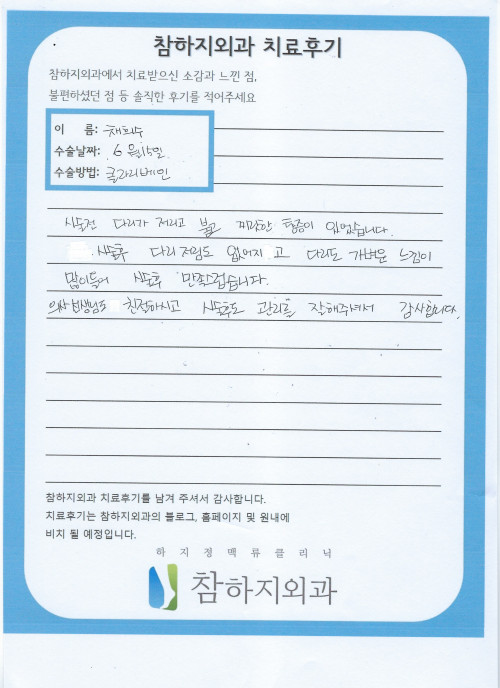 참하지외과 치료후기
참하지외과에서 치료받으신 소감과 느낀 점,
불편하셨던 점 등 솔직한 후기를 적어주세요
이 름: 채희수
수술날짜: 6월15일
수술방법: 클라리베인
시술전 다리가 저리고 붓고 찌릿한 통증이 있었습니다.
시술후 다리저림도 없어지고 다리도 가벼운 느낌이
많이들어 시술후 만족스럽습니다.
의사선생님도 친절하시고 시술후도 관리를 잘해주셔서 감사합니다.
참하지외과 치료후기를 남겨 주셔서 감사합니다.
치료후기는 참하지외과의 블로그, 홈페이지 및 원내에
비치 될 예정입니다.
하지정맥류클리닉
참하지외과